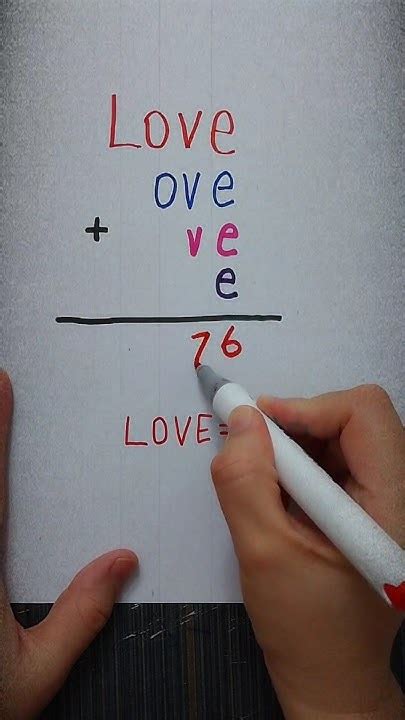 Love
ove
+ ve
e
76
LOVE=